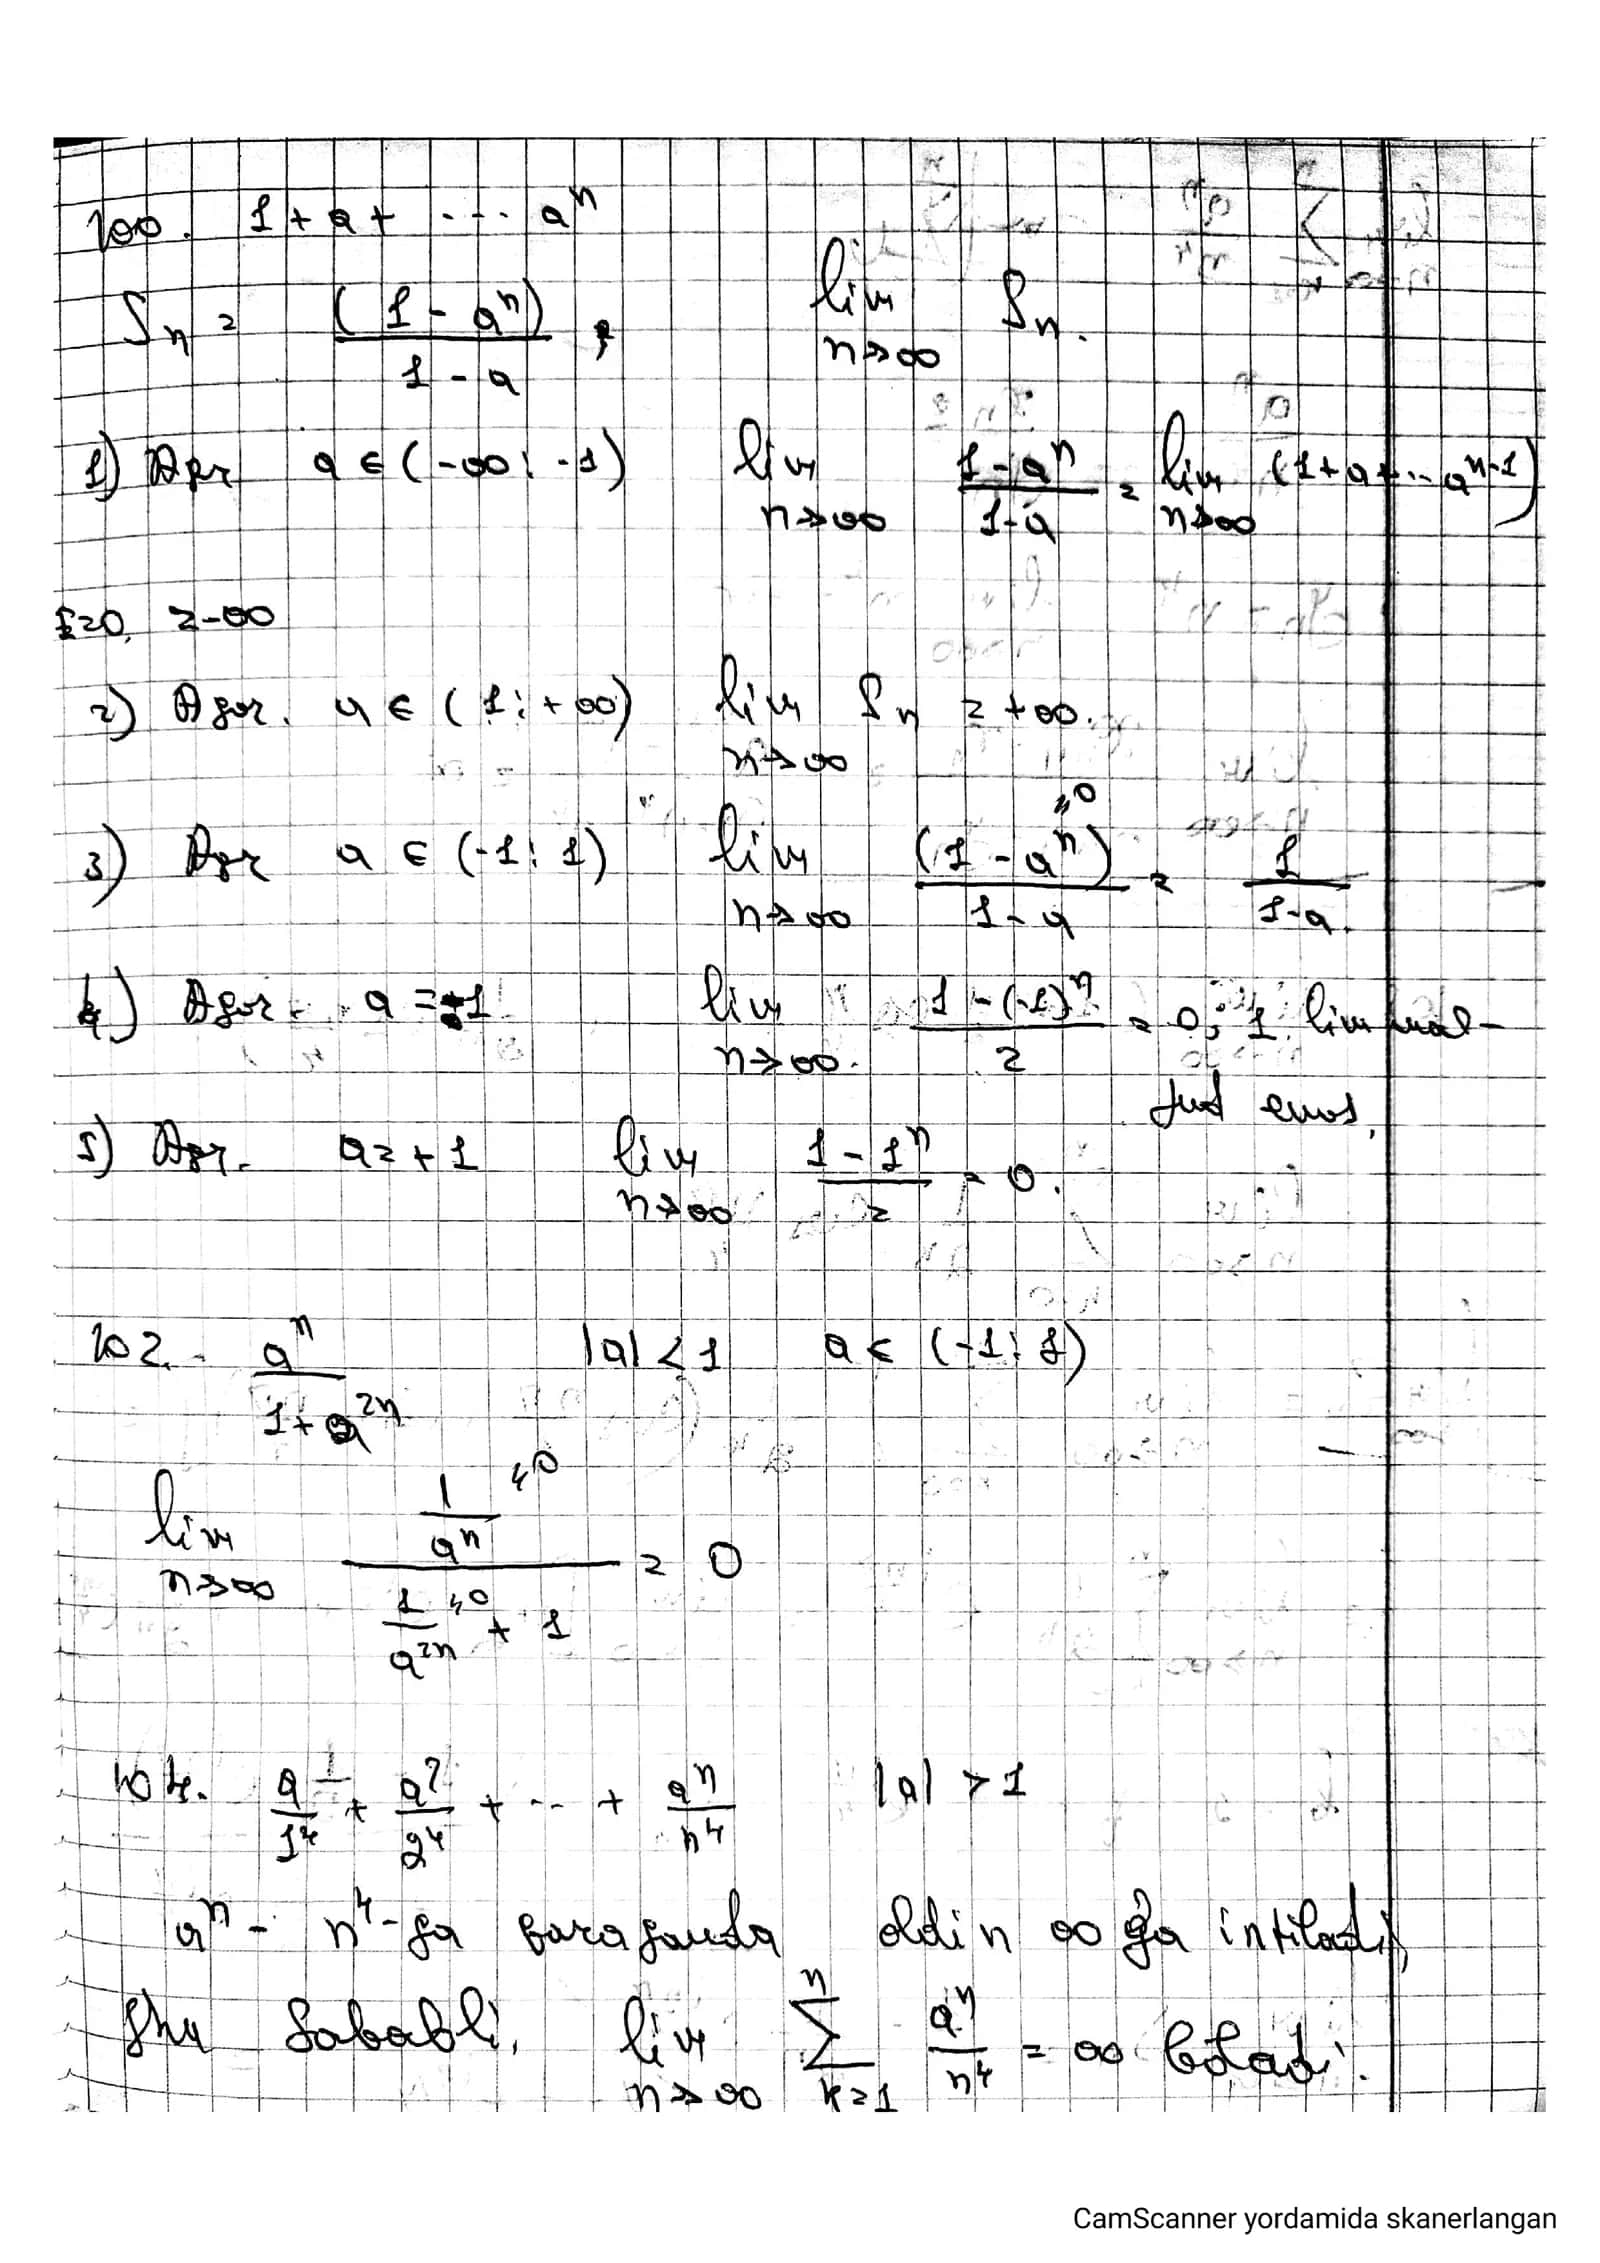 100. 1 + a + ... a^n
S_n = (1 - a^n) / (1 - a) ; lim n→∞ S_n.
1) Agr a ∈ (-∞; -1) lim n→∞ (1 - a^n) / (1 - a) = lim n→∞ (1 + a + ... a^{n-1})
= -∞
2) Agar. a ∈ (1; +∞) lim n→∞ S_n = +∞.
3) Agr a ∈ (-1; 1) lim n→∞ (1 - a^n)^{→0} / (1 - a) = 1 / (1 - a).
4) Agar. a = -1 lim n→∞. (1 - (-1)^n) / 2 = 0; 1 lim mav-
jud emas,
5) Agr. a = +1 lim n→∞ (1 - 1^n) / 2 = 0.
102. a^n / (1 + a^{2n}) |a| < 1 a ∈ (-1; 1)
lim n→∞ (1 / a^n)^{→0} / ((1 / a^{2n})^{→0} + 1) = 0
104. a^1 / 1^4 + a^2 / 2^4 + ... + a^n / n^4 |a| > 1
a^n - n^4 - ga qaraganda oldin ∞ ga intiladi,
Shu sababli, lim n→∞ ∑_{k=1}^{n} a^n / n^4 = ∞ bo'ladi.
CamScanner yordamida skanerlangan